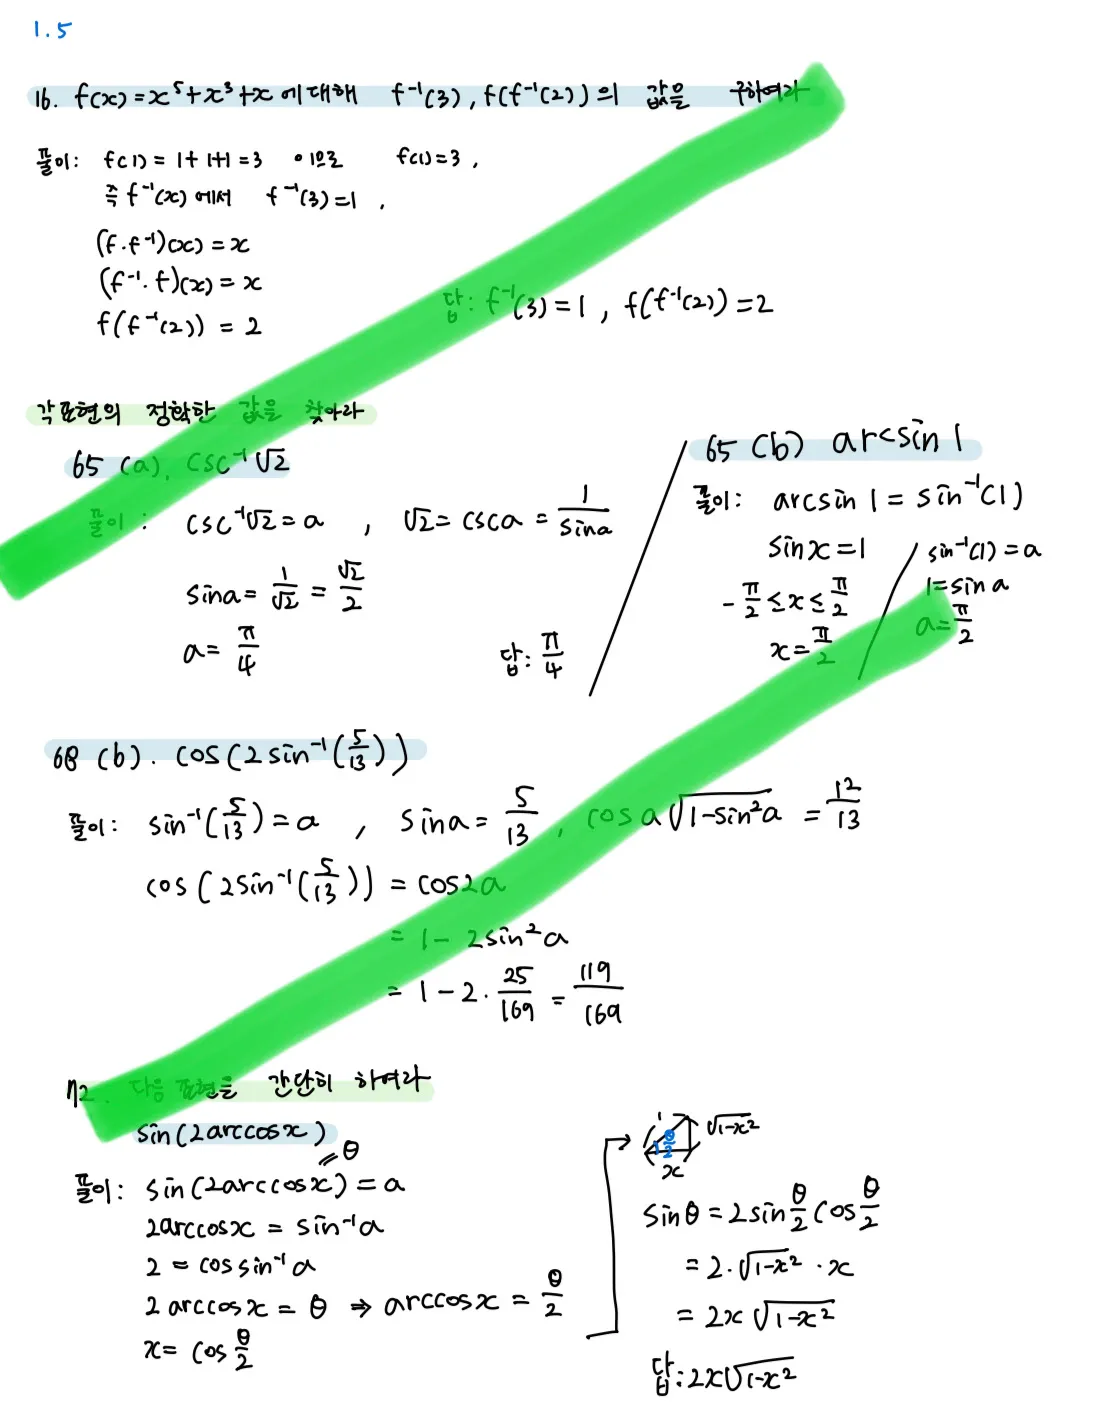 1.5
16. f(x) = x⁵+x³+x 에 대해 f⁻¹(3), f(f⁻¹(2)) 의 값을 구하여라
풀이: f(1) = 1+1+1 = 3 이므로 f(1)=3,
즉 f⁻¹(x) 에서 f⁻¹(3)=1,
(f·f⁻¹)(x) = x
(f⁻¹·f)(x) = x
f(f⁻¹(2)) = 2
답: f⁻¹(3)=1, f(f⁻¹(2))=2
각 표현의 정확한 값을 찾아라
65 (a). csc⁻¹√2
풀이: csc⁻¹√2 = a, √2 = csc a = 1/sin a
sin a = 1/√2 = √2/2
a = π/4
답: π/4
65 (b) arcsin 1
풀이: arcsin 1 = sin⁻¹(1)
sin x = 1
-π/2 ≤ x ≤ π/2
x = π/2
sin⁻¹(1) = a
1 = sin a
a = π/2
68 (b). cos(2sin⁻¹(5/13))
풀이: sin⁻¹(5/13) = a, sin a = 5/13, cos a √(1-sin²a) = 12/13
cos(2sin⁻¹(5/13)) = cos2a
= 1 - 2sin²a
= 1 - 2·25/169 = 119/169
72. 다음 표현을 간단히 하여라
sin(2arccosx)
= θ
풀이: sin(2arccosx) = a
2arccosx = sin⁻¹a
2 = cos sin⁻¹a
2arccosx = θ ⇒ arccosx = θ/2
x = cos θ/2
1
√(1-x²)
θ/2
x
sinθ = 2sin θ/2 cos θ/2
= 2·√(1-x²)·x
= 2x√(1-x²)
답: 2x√(1-x²)